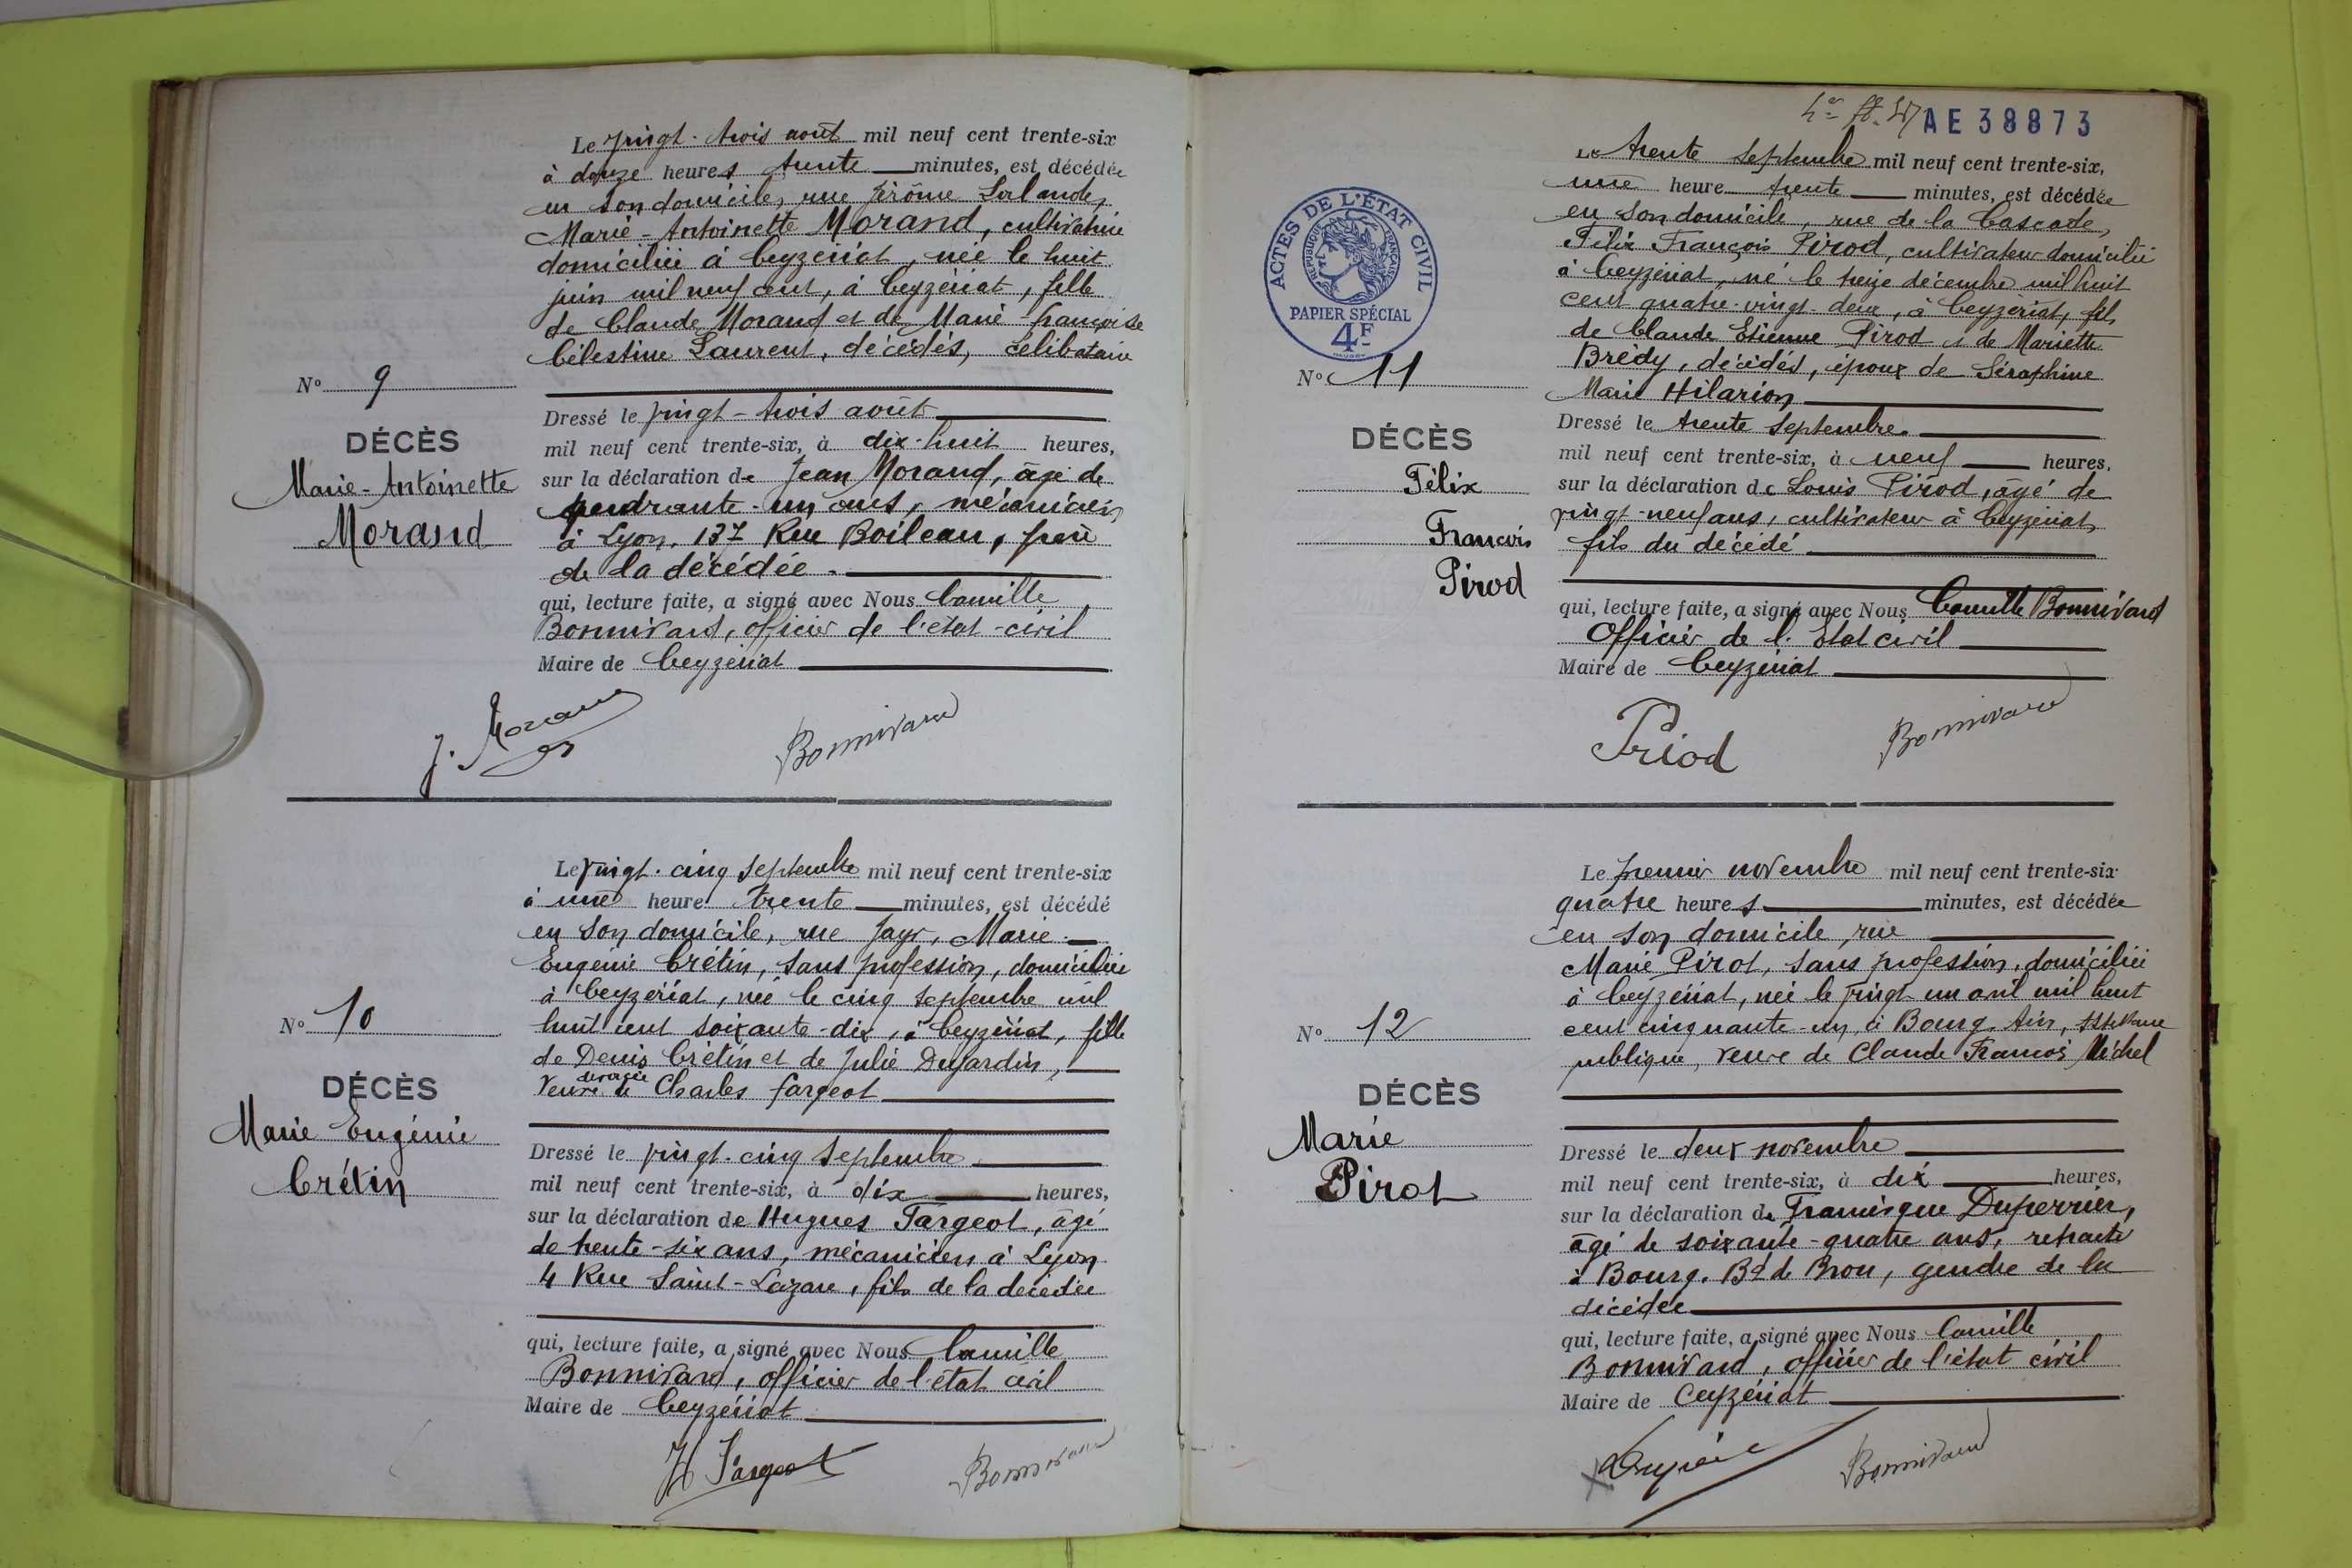 Le vingt-trois août mil neuf cent trente-six
à douze heures trente minutes, est décédée
en son domicile, rue Jérôme Lalande,
Marie-Antoinette Morand, cultivatrice
domiciliée à Ceyzériat, née le huit
juin mil neuf cent, à Ceyzériat, fille
de Claude Morand et de Marie-françoise
Célestine Laurent, décédés, célibataire
N° 9
DÉCÈS
Marie-Antoinette
Morand
Dressé le vingt-trois août
mil neuf cent trente-six, à dix-huit heures,
sur la déclaration de Jean Morand, âgé de
un ans, mécanicien
à Lyon, 137 Rue Boileau, frère
de la décédée.
qui, lecture faite, a signé avec Nous Camille
Bonnivard, officier de l'état-civil
Maire de Ceyzériat
J. Morand
Bonnivard
Le vingt-cinq septembre mil neuf cent trente-six
à une heure trente minutes, est décédé
en son domicile, rue Jayr, Marie
Eugénie Crétin, sans profession, domiciliée
à Ceyzériat, née le cinq septembre mil
huit cent soixante-dix, à Ceyzériat, fille
de Denis Crétin et de Julie Dujardin,
divorcée
veuve de Charles fargeot
N° 10
DÉCÈS
Marie Eugénie
Crétin
Dressé le vingt-cinq septembre
mil neuf cent trente-six, à dix heures,
sur la déclaration de Hugues Fargeot, âgé
de trente-six ans, mécanicien à Lyon
4 Rue Saint-Lazare, fils de la décédée
qui, lecture faite, a signé avec Nous Camille
Bonnivard, officier de l'état civil
Maire de Ceyzériat
H Fargeot
Bonnivard
AE 38873
ACTES DE L'ÉTAT CIVIL
RÉPUBLIQUE FRANÇAISE
PAPIER SPÉCIAL
4F
Le trente septembre mil neuf cent trente-six,
une heure trente minutes, est décédée
en son domicile, rue de la Cascade,
Félix François Pirod, cultivateur domicilié
à Ceyzériat, né le treize décembre mil huit
cent quatre-vingt-deux, à Ceyzériat, fils
de Claude Etienne Pirod et de Mariette
Brédy, décédés, époux de Séraphine
Marie Hilarion
N° 11
DÉCÈS
Félix
François
Pirod
Dressé le trente septembre
mil neuf cent trente-six, à neuf heures,
sur la déclaration de Louis Pirod, âgé de
vingt-neuf ans, cultivateur à Ceyzériat,
fils du décédé
qui, lecture faite, a signé avec Nous Camille Bonnivard
Officier de l'Etat civil
Maire de Ceyzériat
Priod
Bonnivard
Le premier novembre mil neuf cent trente-six
quatre heures minutes, est décédée
en son domicile, rue
Marie Pirot, sans profession, domiciliée
à Ceyzériat, née le vingt un avril mil huit
cent cinquante-un, à Bourg, Ain,
publique, veuve de Claude François Michel
N° 12
DÉCÈS
Marie
Pirot
Dressé le deux novembre
mil neuf cent trente-six, à dix heures,
sur la déclaration de Francisque Duperrier,
âgé de soixante-quatre ans, retraité
à Bourg, Bd de Brou, gendre de la
décédée
qui, lecture faite, a signé avec Nous Camille
Bonnivard, officier de l'état civil
Maire de Ceyzériat
Bonnivard